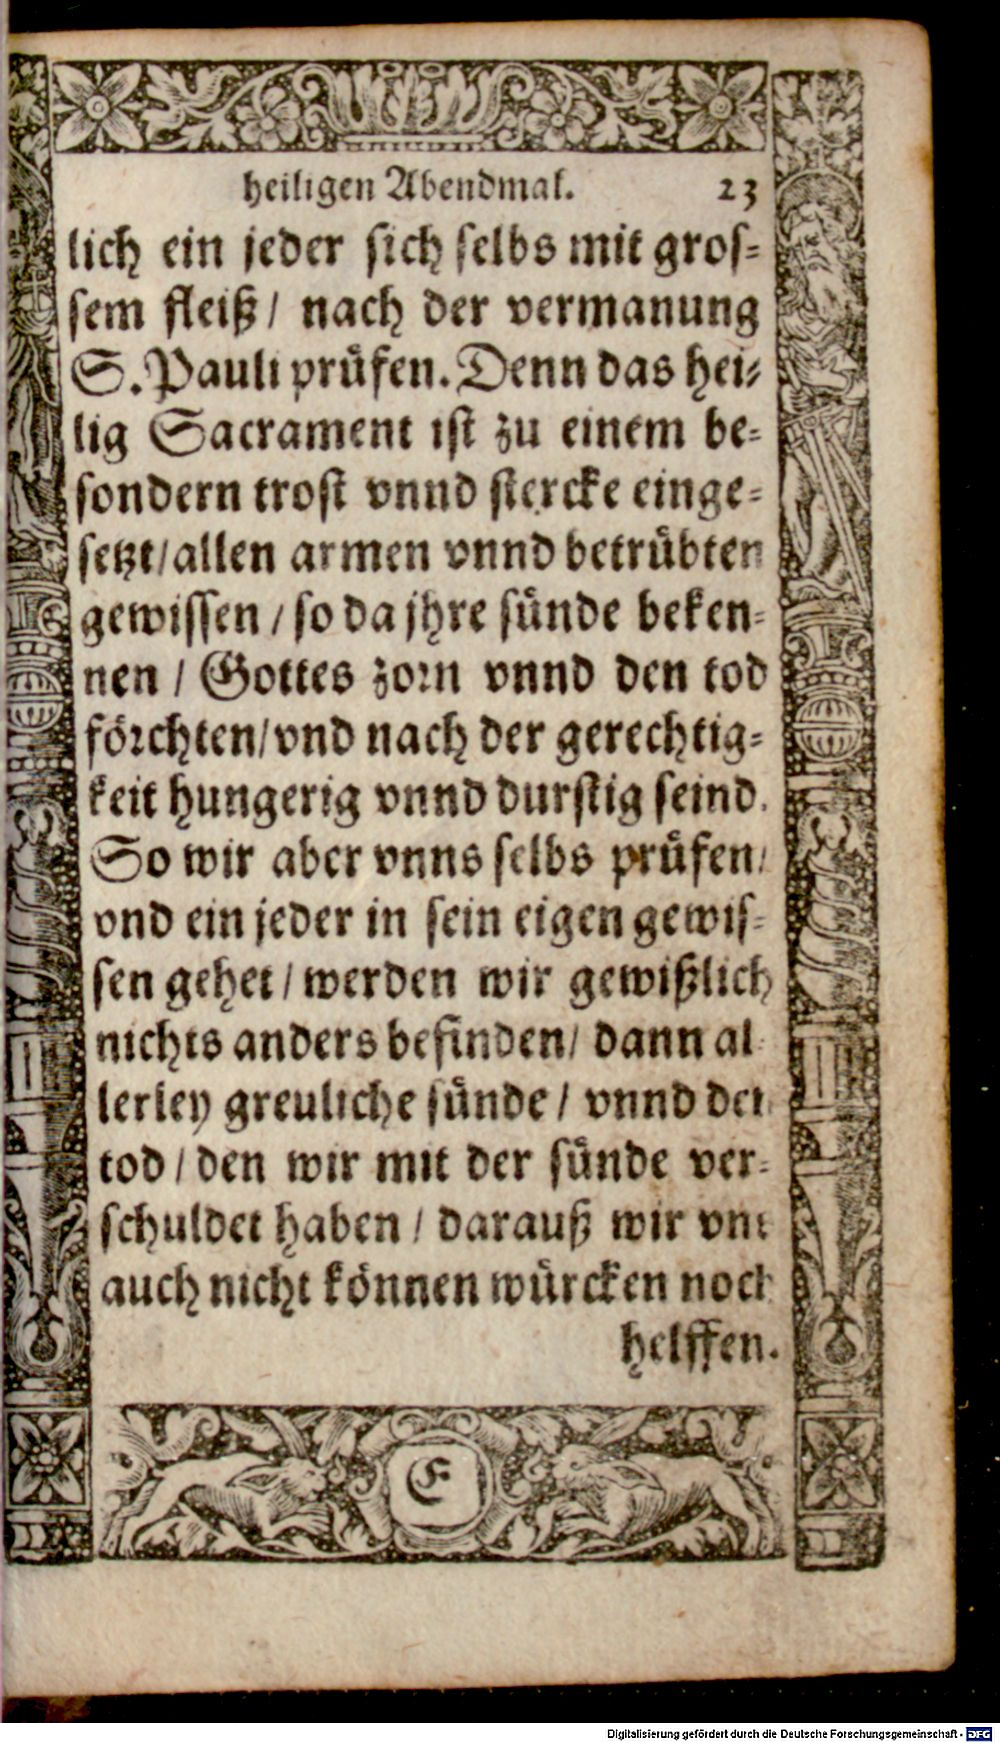 heiligen Abendmal. 23
lich ein jeder sich selbs mit gros-
sem fleiß / nach der vermanung
S. Pauli prüfen. Denn das hei-
lig Sacrament ist zu einem be-
sondern trost vnnd stercke einge-
setzt / allen armen vnnd betrübten
gewissen / so da jhre sünde beken-
nen / Gottes zorn vnnd den tod
förchten / vnd nach der gerechtig-
keit hungerig vnnd durstig seind.
So wir aber vnns selbs prüfen /
vnd ein jeder in sein eigen gewis-
sen gehet / werden wir gewißlich
nichts anders befinden / dann al-
lerley greuliche sünde / vnnd den
tod / den wir mit der sünde ver-
schuldet haben / darauß wir vns
auch nicht können würcken noch
helffen.
E
Digitalisierung gefördert durch die Deutsche Forschungsgemeinschaft - DFG